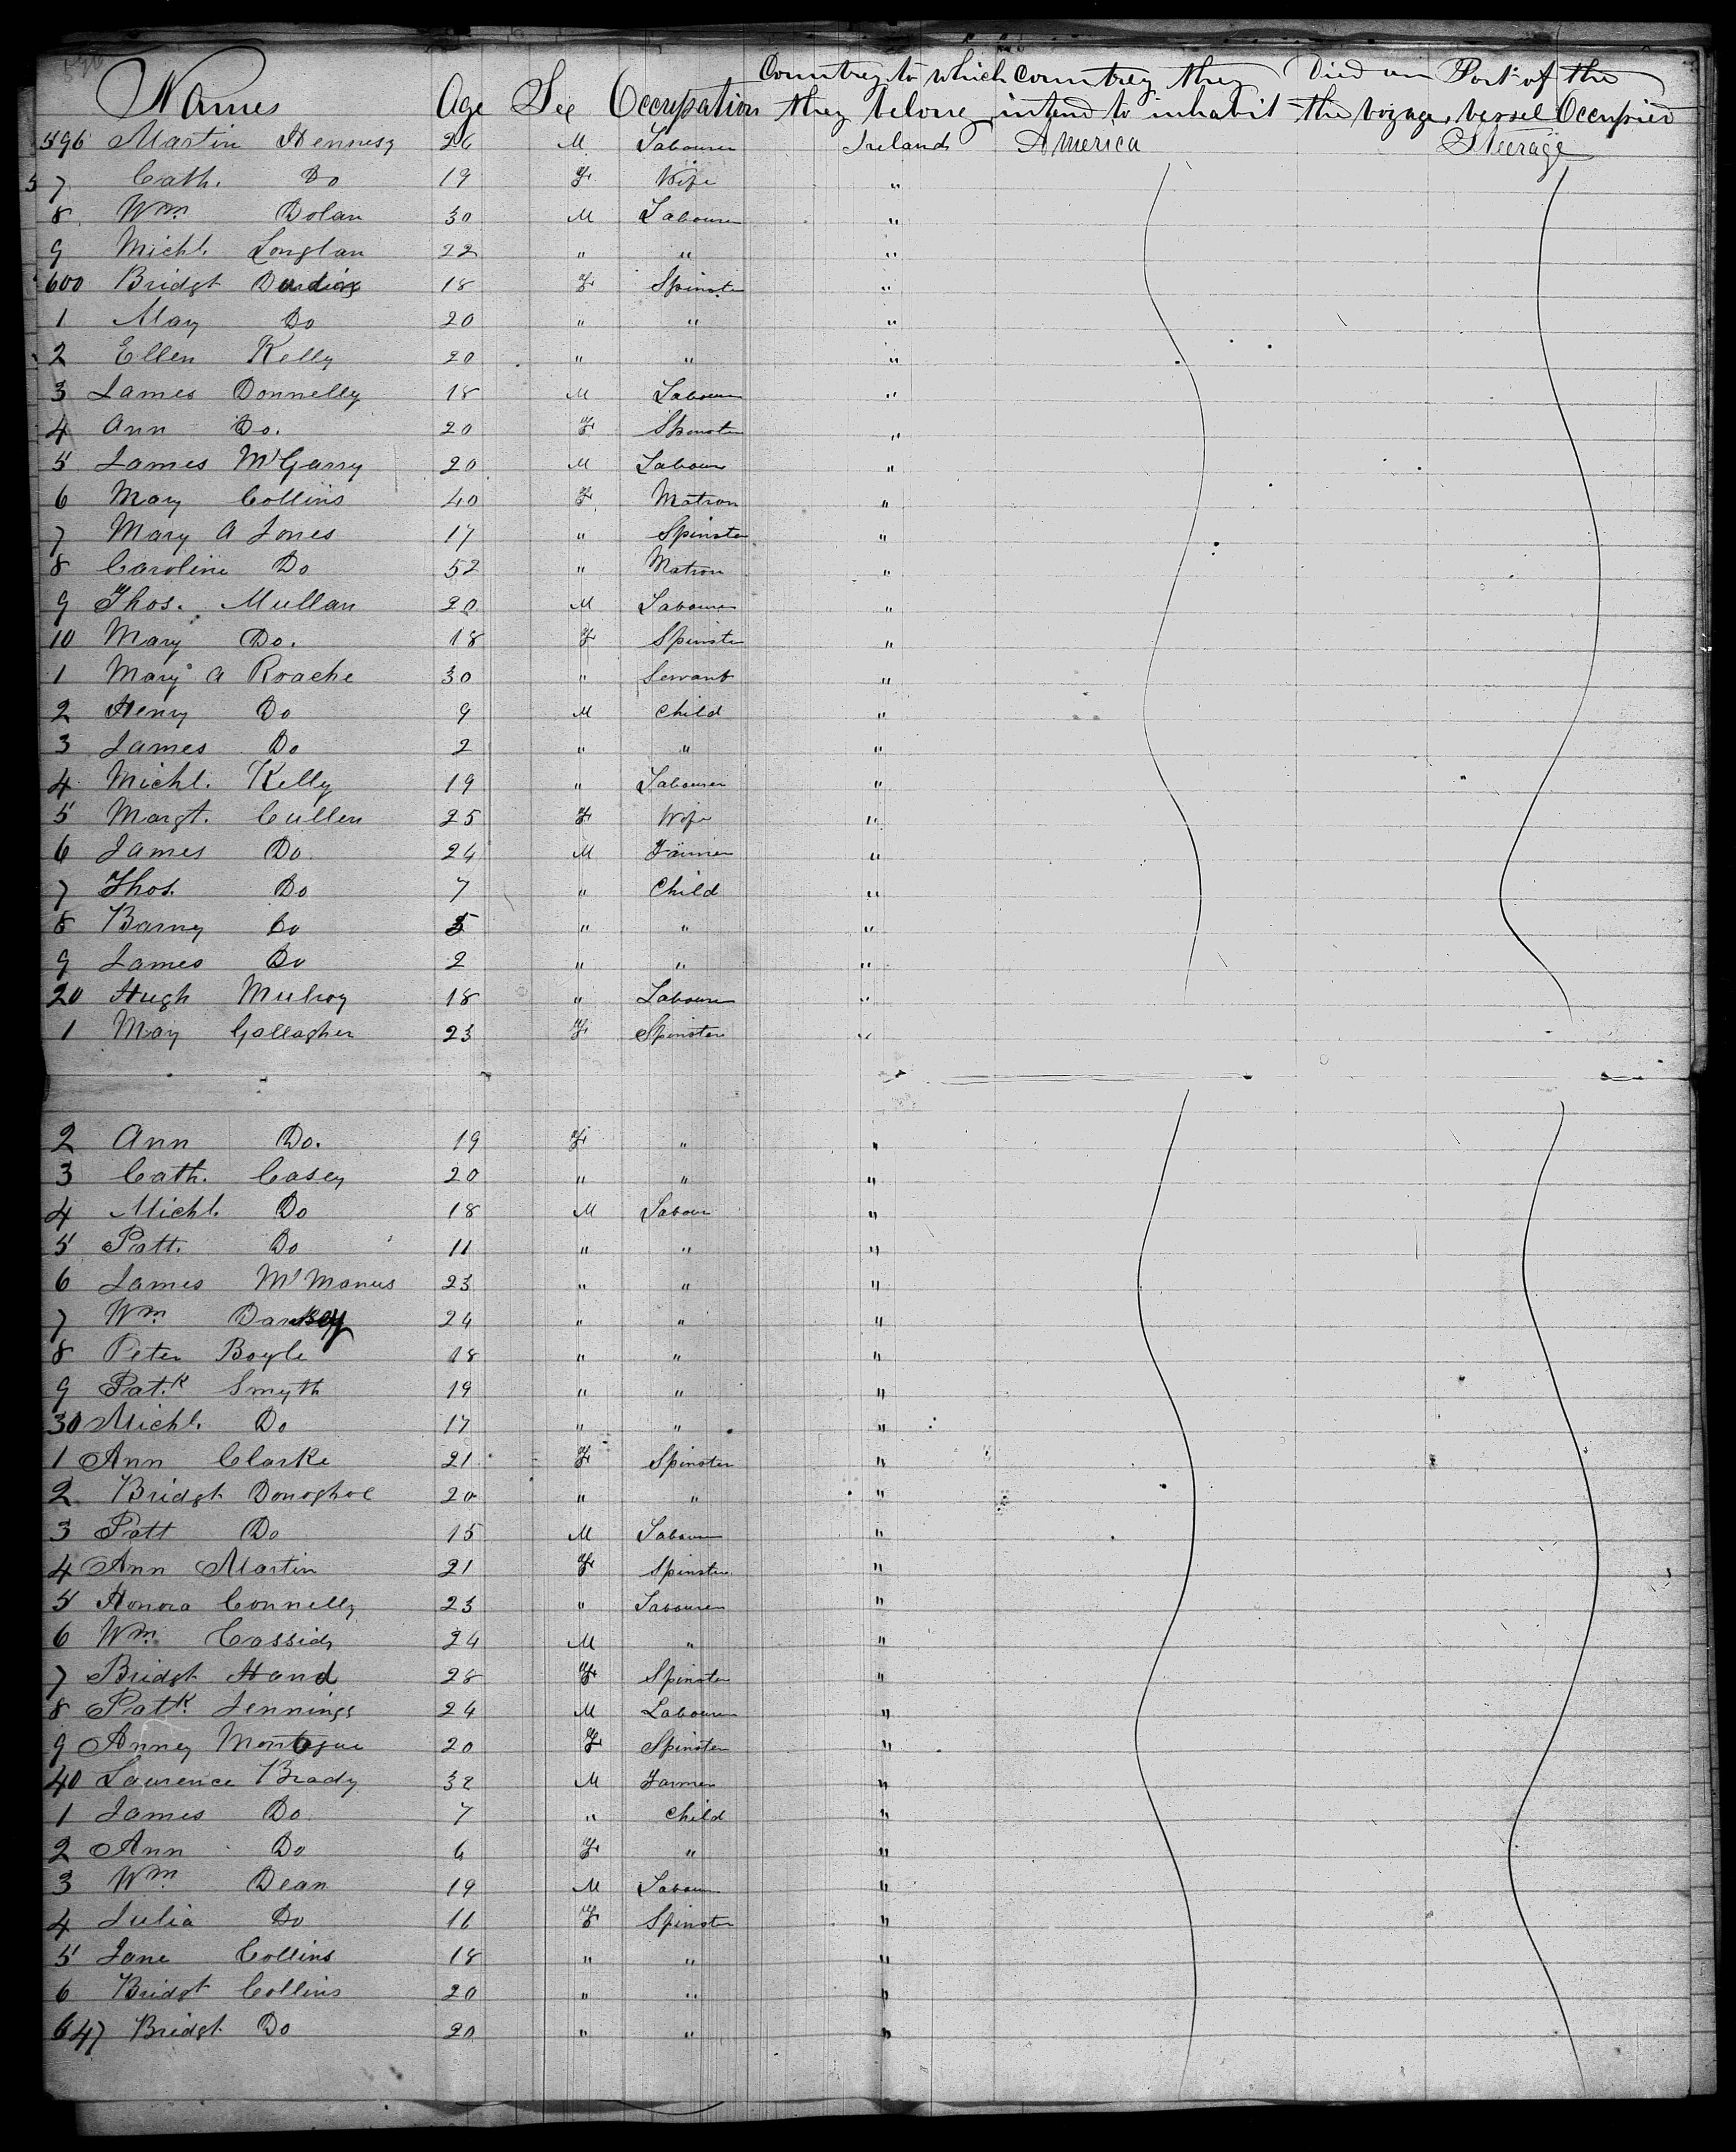 Names Age Sex Occupation Country to which they belong Country they intend to inhabit Died on the voyage Part of the vessel Occupied
596 Martin Hennesy 26 M Labourer Ireland America Steerage
7 Cath. Do 19 F Wife "
8 Wm Dolan 30 M Labourer "
9 Michl. 22 " " "
600 Bridgt 18 F Spinster "
1 May Do 20 " " "
2 Ellen Kelly 20 " " "
3 James Donnelly 18 M Labourer "
4 Ann Do. 20 F Spinster "
5 James McGarry 20 M Labourer "
6 Mary Collins 40 F Matron "
7 Mary A Jones 17 " Spinster "
8 Caroline Do 52 " Matron "
9 Thos. Mullan 20 M Labourer "
10 Mary Do. 18 F Spinster "
1 Mary A Roache 30 " Servant "
2 Henry Do 9 M Child "
3 James Do 2 " " "
4 Michl. Kelly 19 " Labourer "
5 Margt. Cullen 25 F Wife "
6 James Do 24 M Farmer "
7 Thos. Do 7 " Child "
8 Barny Do 5 " " "
9 James Do 2 " " "
20 Hugh Mulroy 18 " Labourer "
1 May Gallagher 23 F Spinster "
2 Ann Do. 19 F " "
3 Cath. Casey 20 " " "
4 Michl. Do 18 M Labour "
5 Patt. Do 11 " " "
6 James McManus 23 " " "
7 Wm 24 " " "
8 Peter Boyle 18 " " "
9 Patk Smyth 19 " " "
30 Michl. Do 17 " " "
1 Ann Clarke 21 F Spinster "
2 Bridgt Donoghoe 20 " " "
3 Patt Do 15 M Labourer "
4 Ann Martin 21 F Spinster "
5 Honora Connelly 23 " Labourer "
6 Wm Cassidy 24 M " "
7 Bridgt Hand 28 F Spinster "
8 Patk Jennings 24 M Labourer "
9 Anney Montogue 20 F Spinster "
40 Laurence Brady 32 M Farmer "
1 James Do 7 " Child "
2 Ann Do 6 F " "
3 Wm Dean 19 M Labour "
4 Julia Do 16 F Spinster "
5 Jane Collins 18 " " "
6 Bridgt Collins 20 " " "
647 Bridgt Do 20 " " "